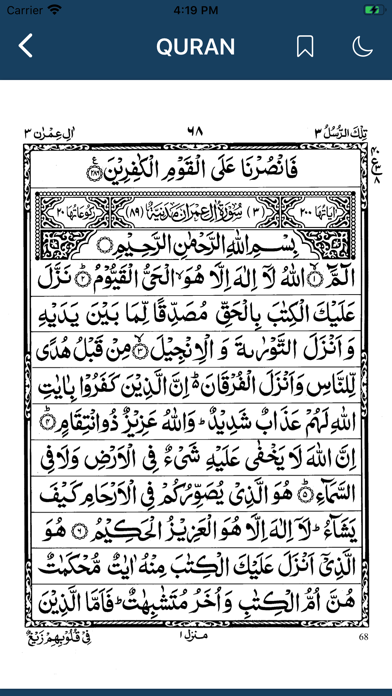 Carrier 4:19 PM
QURAN
اٰل عِمْرٰن ٣ ٦٨ تِلْكَ الرُّسُلُ ٣
فَانْصُرْنَا عَلَى الْقَوْمِ الْكٰفِرِيْنَ ﴿٢٨٦﴾
اٰيَاتُهَا ٢٠٠ (٣) سُوْرَةُ اٰلِ عِمْرَانَ مَدَنِيَّةٌ (٨٩) رُكُوْعَاتُهَا ٢٠
بِسْمِ اللّٰهِ الرَّحْمٰنِ الرَّحِيْمِ
الٓمّٓ ﴿١﴾ اللّٰهُ لَاۤ اِلٰهَ اِلَّا هُوَ ۙ الْحَيُّ الْقَيُّوْمُ ﴿٢﴾ نَزَّلَ
عَلَيْكَ الْكِتٰبَ بِالْحَقِّ مُصَدِّقًا لِّمَا بَيْنَ يَدَيْهِ
وَاَنْزَلَ التَّوْرٰىةَ وَالْاِنْجِيْلَ ﴿٣﴾ مِنْ قَبْلُ هُدًى
لِّلنَّاسِ وَاَنْزَلَ الْفُرْقَانَ ؕ اِنَّ الَّذِيْنَ كَفَرُوْا بِاٰيٰتِ
اللّٰهِ لَهُمْ عَذَابٌ شَدِيْدٌ ؕ وَاللّٰهُ عَزِيْزٌ ذُو انْتِقَامٍ ﴿٤﴾
اِنَّ اللّٰهَ لَا يَخْفٰى عَلَيْهِ شَيْءٌ فِي الْاَرْضِ وَلَا فِي
السَّمَآءِ ﴿٥﴾ هُوَ الَّذِيْ يُصَوِّرُكُمْ فِي الْاَرْحَامِ كَيْفَ
يَشَآءُ ؕ لَاۤ اِلٰهَ اِلَّا هُوَ الْعَزِيْزُ الْحَكِيْمُ ﴿٦﴾ هُوَ
الَّذِيْۤ اَنْزَلَ عَلَيْكَ الْكِتٰبَ مِنْهُ اٰيٰتٌ مُّحْكَمٰتٌ
هُنَّ اُمُّ الْكِتٰبِ وَاُخَرُ مُتَشٰبِهٰتٌ ؕ فَاَمَّا الَّذِيْنَ
فِيْ قُلُوْبِهِمْ زَيْغٌ منزل ١ 68